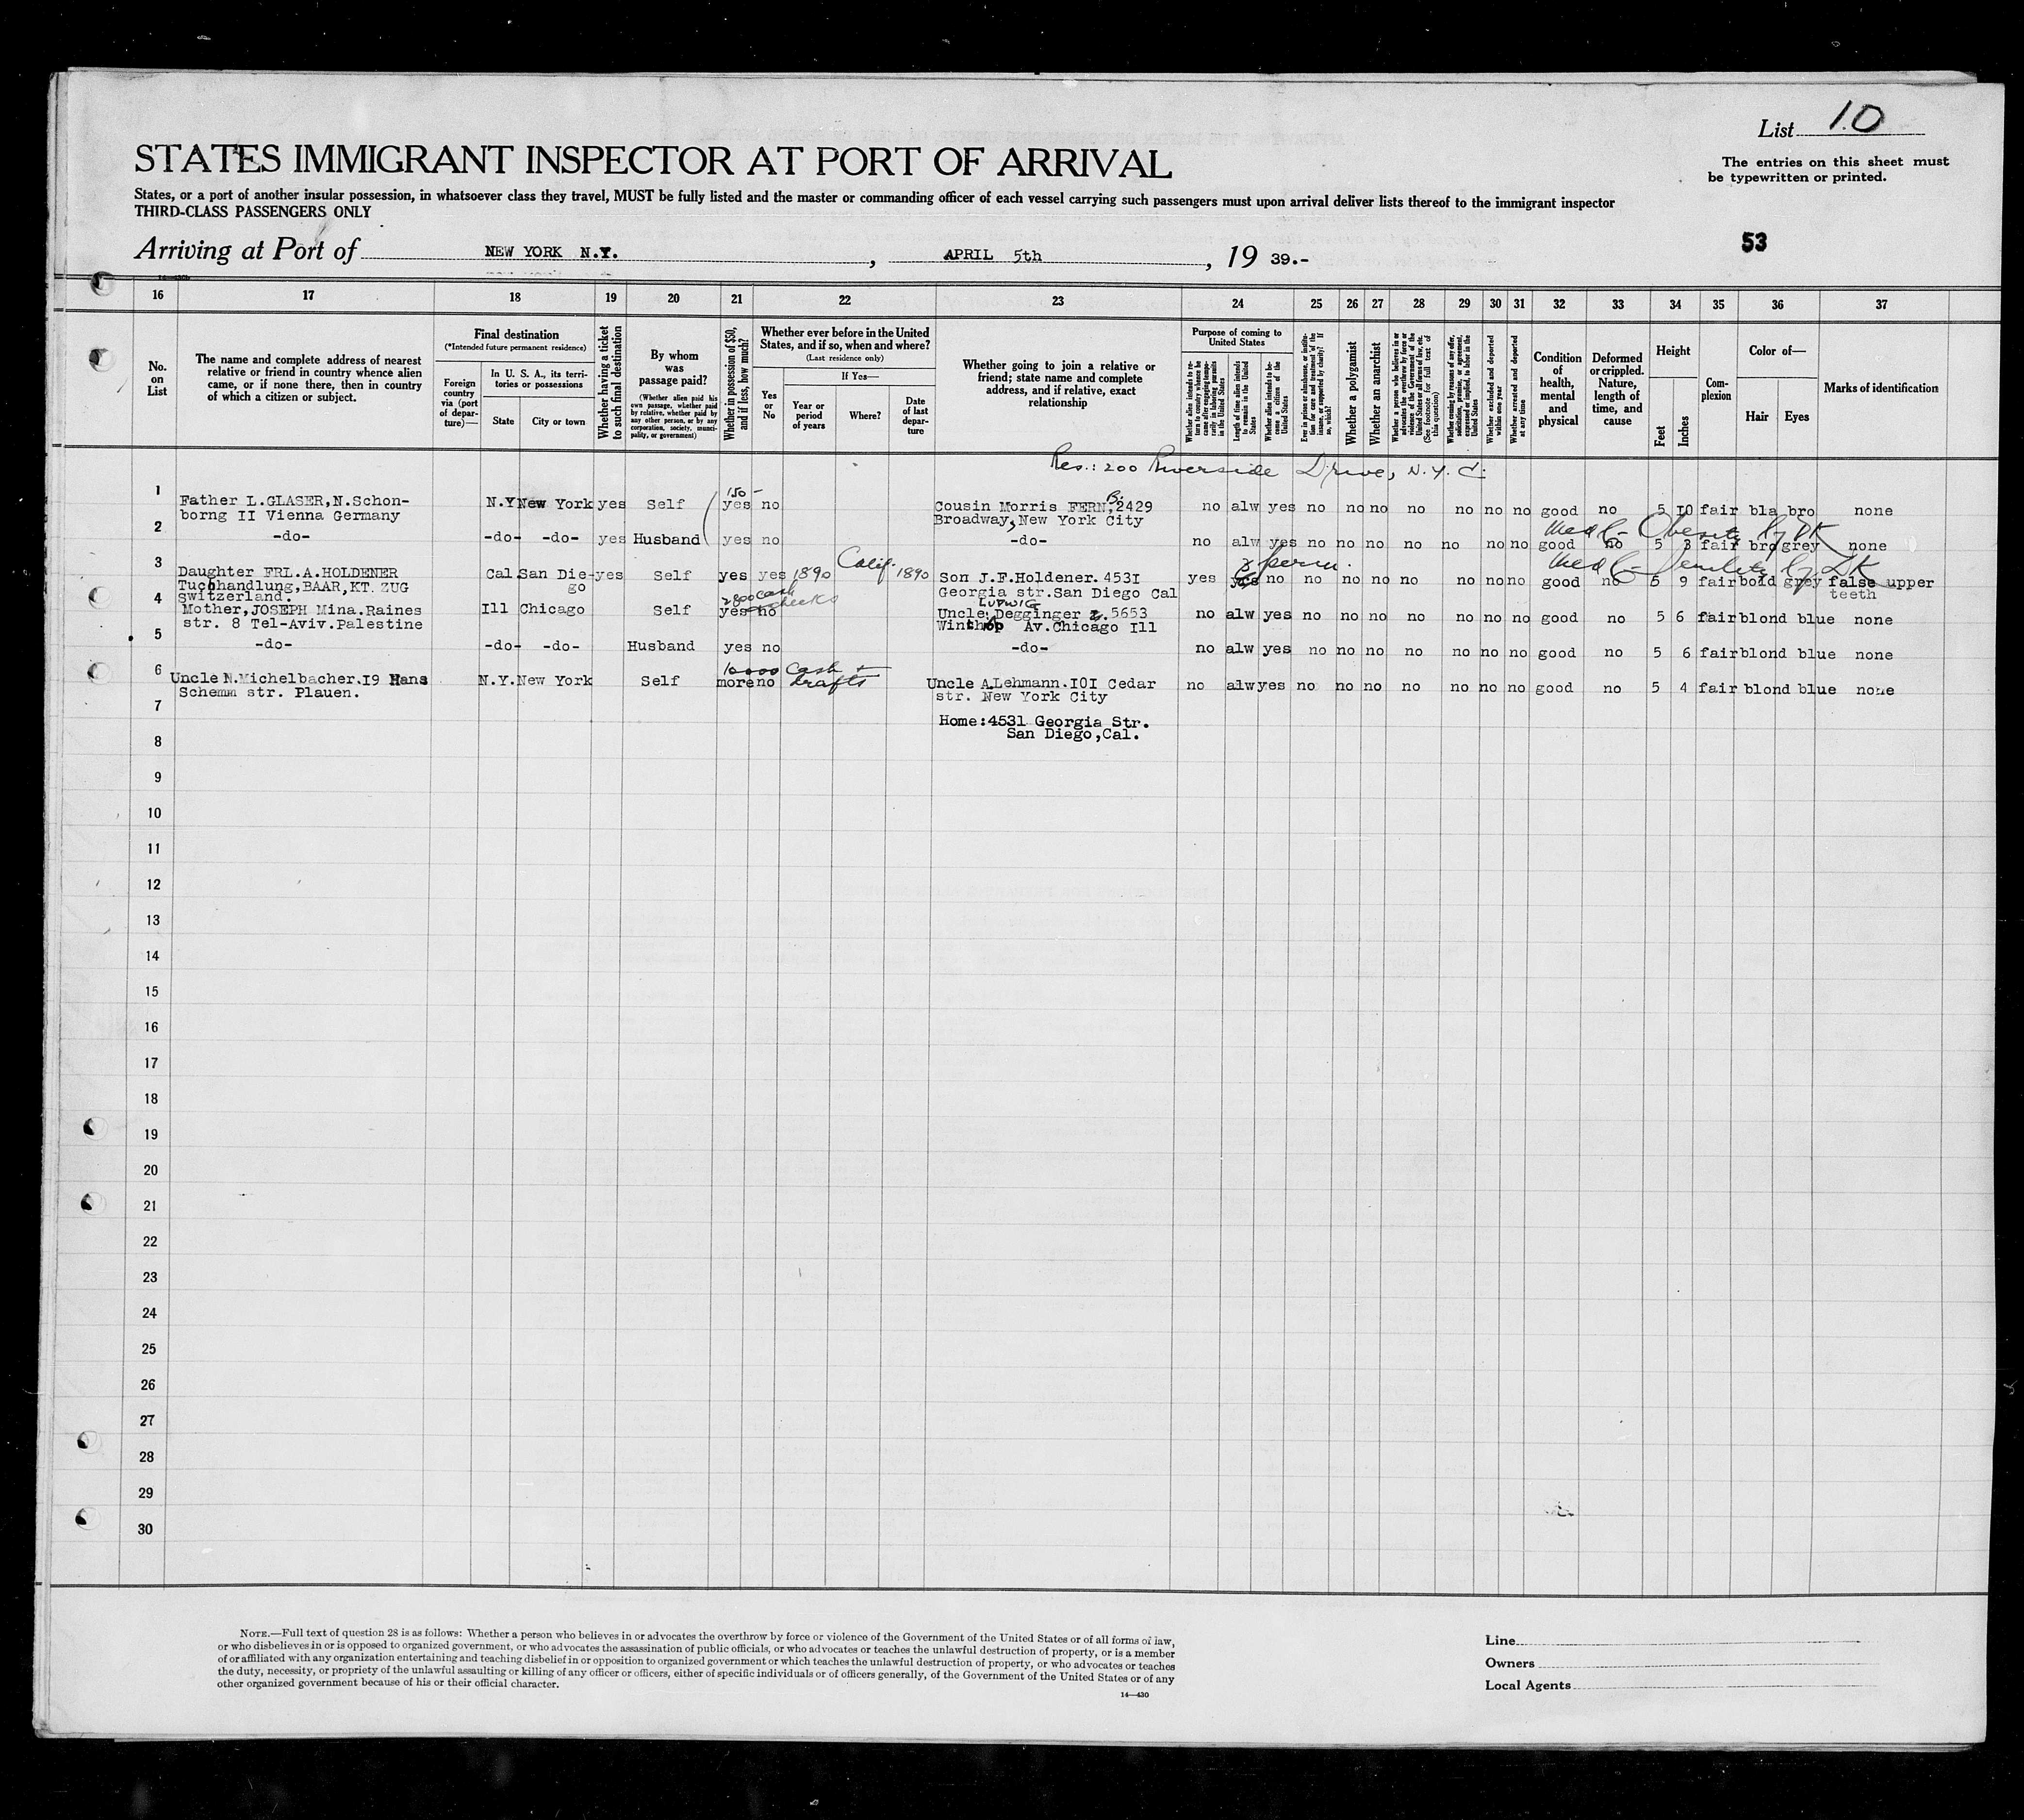 List 10
STATES IMMIGRANT INSPECTOR AT PORT OF ARRIVAL
The entries on this sheet must
be typewritten or printed.
States, or a port of another insular possession, in whatsoever class they travel, MUST be fully listed and the master or commanding officer of each vessel carrying such passengers must upon arrival deliver lists thereof to the immigrant inspector
THIRD-CLASS PASSENGERS ONLY
53
Arriving at Port of NEW YORK N.Y. , APRIL 5th , 19 39.-
14—430b
16 17 18 19 20 21 22 23 24 25 26 27 28 29 30 31 32 33 34 35 36 37
No. on List
The name and complete address of nearest relative or friend in country whence alien came, or if none there, then in country of which a citizen or subject.
Final destination
(*Intended future permanent residence)
Foreign country via (port of departure)—
In U. S. A., its territories or possessions
State
City or town
Whether having a ticket to such final destination
By whom was passage paid?
(Whether alien paid his own passage, whether paid by relative, whether paid by any other person, or by any corporation, society, municipality, or government)
Whether in possession of $50, and if less, how much?
Whether ever before in the United States, and if so, when and where?
(Last residence only)
Yes or No
If Yes—
Year or period of years
Where?
Date of last departure
Whether going to join a relative or friend; state name and complete address, and if relative, exact relationship
Purpose of coming to United States
Whether alien intends to return to country whence he came after engaging temporarily in laboring pursuits in the United States
Length of time alien intends to remain in the United States
Whether alien intends to become a citizen of the United States
Ever in prison or almshouse, or institution for care and treatment of the insane, or supported by charity? If so, which?
Whether a polygamist
Whether an anarchist
Whether a person who believes in or advocates the overthrow by force or violence of the Government of the United States or all forms of law, etc. (See footnote for full text of this question)
Whether coming by reasons of any offer, solicitation, promise, or agreement, expressed or implied, to labor in the United States
Whether excluded and deported within one year
Whether arrested and deported at any time
Condition of health, mental and physical
Deformed or crippled. Nature, length of time, and cause
Height
Feet
Inches
Complexion
Color of—
Hair
Eyes
Marks of identification
Res.: 200 Riverside Drive, N.Y.C.
150-
1 Father L.GLASER,N.Schon- N.Y New York yes Self yes no Cousin Morris FERN, B. 2429 no alw yes no no no no no no no good no 5 10 fair bla bro none
borng II Vienna Germany Broadway, New York City
Med C- Obesity by DK
2 -do- -do- -do- yes Husband yes no -do- no alw yes no no no no no no no good no 5 3 fair bro grey none
Calif. perm. Med C- Senility by DK
3 Daughter FRL.A.HOLDENER Cal San Die- yes Self yes yes 1890 1890 Son J.F.Holdener.4531 yes yes no no no no no no no no good no 5 9 fair bold grey false upper
Tuchhandlung,BAAR,KT.ZUG go Georgia str.San Diego Cal teeth
Switzerland. 2800 cash checks LUDWIG
4 Mother,JOSEPH Mina.Raines Ill Chicago Self yes no Uncle Degginger 5653 no alw yes no no no no no no no good no 5 6 fair blond blue none
str. 8 Tel-Aviv.Palestine Winthop Av.Chicago Ill
5 -do- -do- -do- Husband yes no -do- no alw yes no no no no no no no good no 5 6 fair blond blue none
10000 cash + drafts
6 Uncle N.Michelbacher.19 Hans N.Y. New York Self more no Uncle A.Lehmann.101 Cedar no alw yes no no no no no no no good no 5 4 fair blond blue none
Schemm str. Plauen. str. New York City
7 Home:4531 Georgia Str.
San Diego,Cal.
8
9
10
11
12
13
14
15
16
17
18
19
20
21
22
23
24
25
26
27
28
29
30
NOTE.—Full text of question 28 is as follows: Whether a person who believes in or advocates the overthrow by force or violence of the Government of the United States or of all forms of law,
or who disbelieves in or is opposed to organized government, or who advocates the assassination of public officials, or who advocates or teaches the unlawful destruction of property, or is a member
of or affiliated with any organization entertaining and teaching disbelief in or opposition to organized government or which teaches the unlawful destruction of property, or who advocates or teaches
the duty, necessity, or propriety of the unlawful assaulting or killing of any officer or officers, either of specific individuals or of officers generally, of the Government of the United States or of any
other organized government because of his or their official character.
14—430
Line
Owners
Local Agents